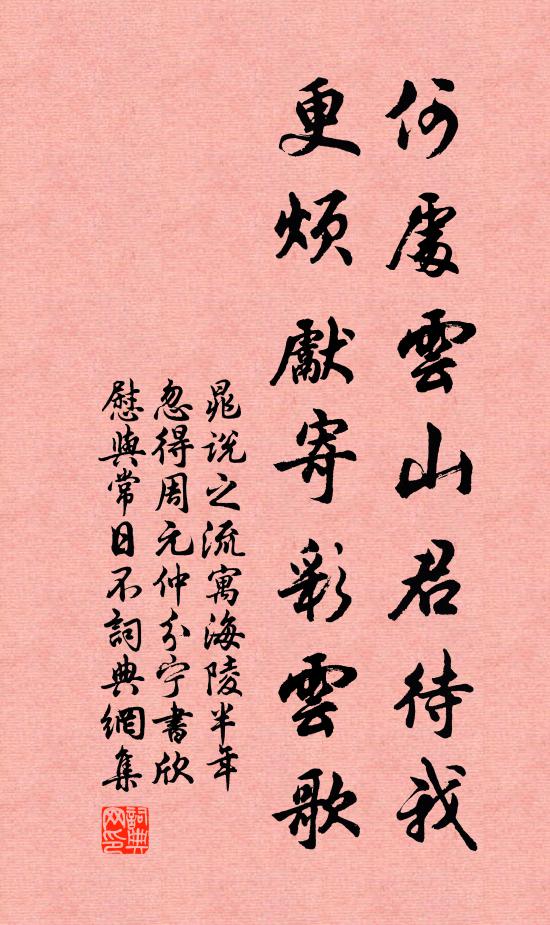 何處雲山君待我
更煩獻寄彩雲歌
晁说之流寓海陵半年
忽得周元仲分宁書欣
慰與常日不詞典網集
詞典网印